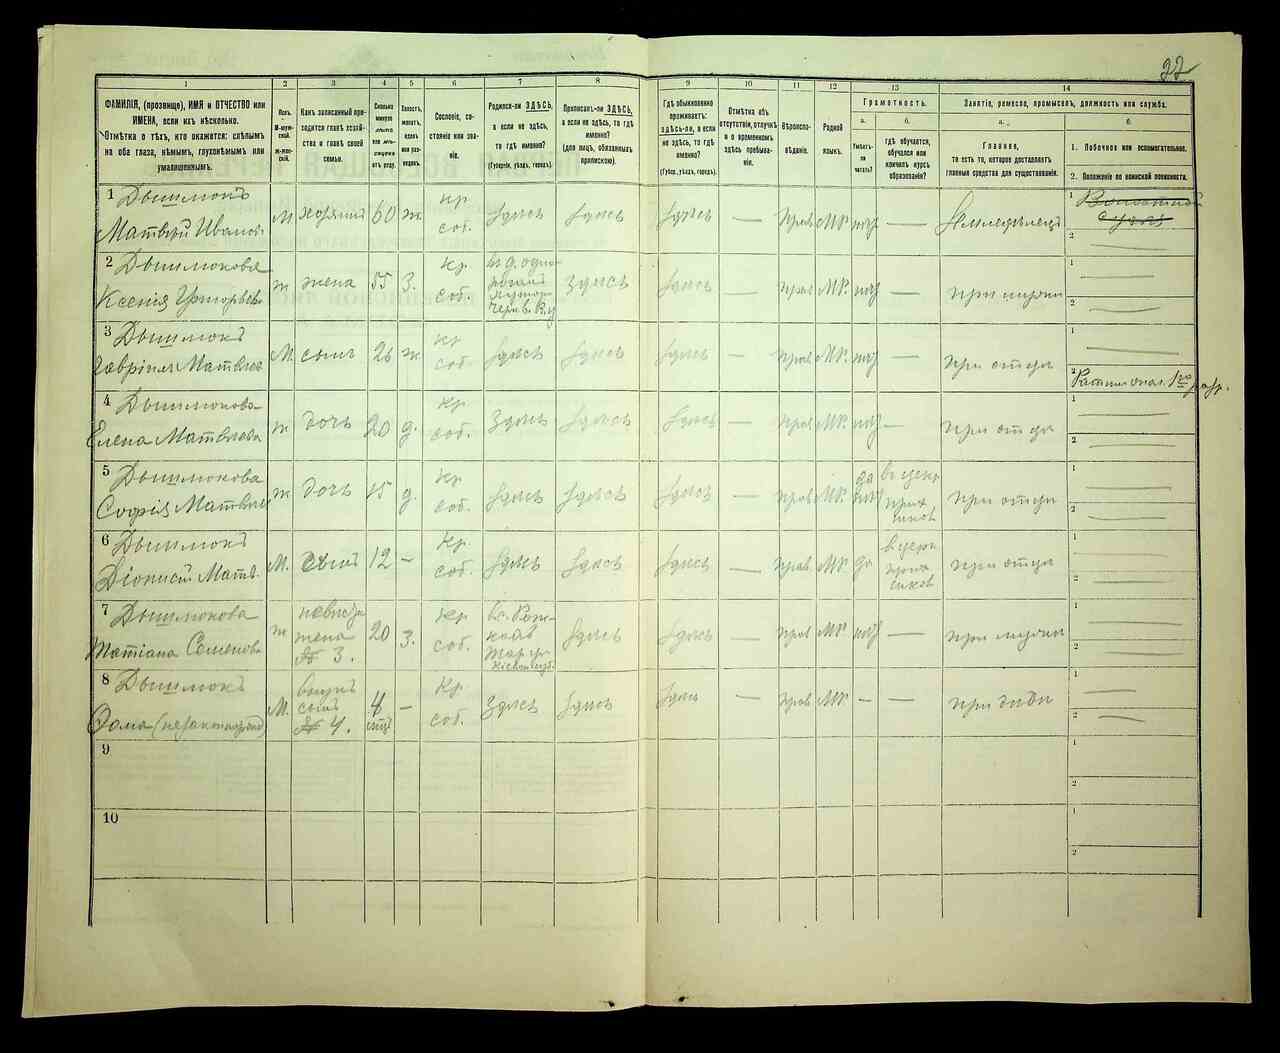 22
1 2 3 4 5 6 7 8 9 10 11 12 13 14
ФАМИЛІЯ, (прозвище), ИМЯ и ОТЧЕСТВО или
ИМЕНА, если ихъ нѣсколько.
Отмѣтка о тѣхъ, кто окажется: слѣпымъ
на оба глаза, нѣмымъ, глухонѣмымъ или
умалишеннымъ.
Полъ.
М-мужской.
Ж-женскій.
Какъ записанный приходится
главѣ хозяйства
и главѣ своей
семьи.
Сколько
минуло
лѣтъ
или мѣсяцевъ
отъ роду.
Холостъ,
женатъ,
вдовъ
или разведенъ.
Сословіе, состояніе
или званіе.
Родился-ли ЗДѢСЬ,
а если не здѣсь,
то гдѣ именно?
(Губернія, уѣздъ, городъ).
Приписанъ-ли ЗДѢСЬ,
а если не здѣсь, то гдѣ
именно?
(для лицъ, обязанныхъ
припиской).
Гдѣ обыкновенно
проживаетъ:
здѣсь-ли, а если
не здѣсь, то гдѣ
именно?
(Губер., уѣздъ, городъ).
Отмѣтка объ
отсутствіи, отлучкѣ
и о временномъ
здѣсь пребываніи.
Вѣроисповѣданіе.
Родной
языкъ.
Грамотность.
а.
Умѣетъ-ли
читать?
б.
гдѣ обучается,
обучался или
кончилъ курсъ
образованія?
Занятіе, ремесло, промыселъ, должность или служба.
а.
Главное,
то есть то, которое доставляетъ
главныя средства для существованія.
б.
1. Побочное или вспомогательное.
2. Положеніе по воинской повинности.
1 Дышлюкъ
Матвѣй Иванов
М хозяинъ 60 ж кр. соб. здѣсь здѣсь здѣсь — прав МР. нѣт — Земледѣлецъ
2 Дышлюкова
Ксенія Григорьева
ж жена 55 з. кр. соб. здѣсь здѣсь — прав МР. нѣт — при мужи
3 Дышлюкъ
Гавріилъ Матвѣев
М. сынъ 26 ж кр. соб. здѣсь здѣсь здѣсь — прав МР. нѣт — при отци
Ратникъ опол. 1го разр.
4 Дышлюкова
Елена Матвѣева
ж дочь 20 д. кр. соб. здѣсь здѣсь здѣсь — прав МР. нѣт — при отци
5 Дышлюкова
Софія Матвѣев
ж дочь 15 д. кр. соб. здѣсь здѣсь здѣсь — прав МР да в церк прих школ при отци
6 Дышлюкъ
Діонисій Матв.
М. сынъ 12 — кр. соб. здѣсь здѣсь здѣсь — прав МР. да в церк прих школ при отци
7 Дышлюкова
Татіана Семенова
ж невѣстка жена № 3. 20 з. кр. соб. здѣсь здѣсь — прав МР. нѣт — при мужи
8 Дышлюкъ
Фома (незаконорож)
М. внукъ сынъ № 4. 8 мѣс — кр. соб. здѣсь здѣсь здѣсь — прав МР. — — при диди
9
10